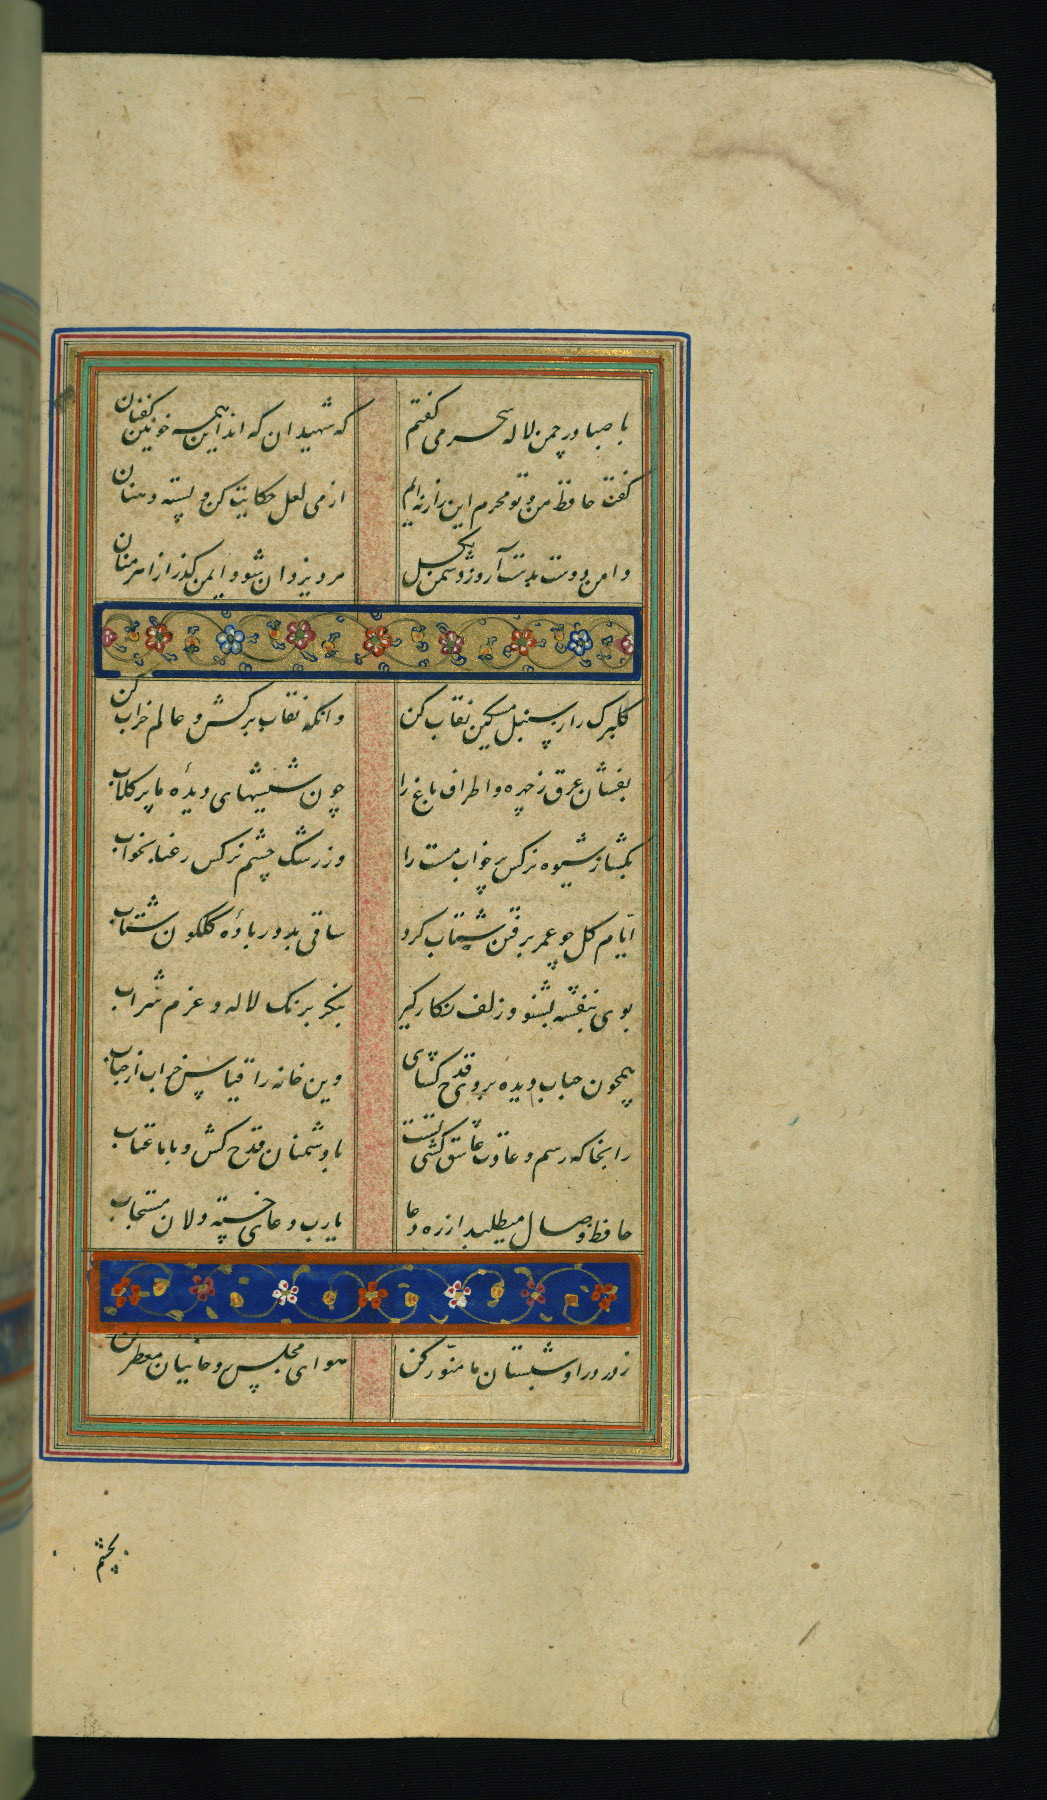 با صبا در چمن لاله سحر می گفتم
که شهیدان که اند این همه خونین کفنان
گفت حافظ من و تو محرم این راز نه ایم
از می لعل حکایت کن و پسته دهنان
دامن دوست بدست آر و ز دشمن بگسل
مرد یزدان شو و ایمن گذر از اهرمنان
گلبرک را ز سنبل مشکین نقاب کن
وانکه نقاب برکش و عالم خراب کن
بفشان عرق ز چهره و اطراف باغ را
چون شیشهای دیدهٔ ما پر کلاب
بکشا ز شیوه نرکس پر خواب مست را
وز رشک چشم نرکس رعنا بخواب
ایّام کل چو عمر برفتن شتاب کرد
ساقی بدور بادهٔ کلکون شتاب
بوی بنفشه بشنو و زلف نکار کیر
بنکر برنک لاله و عزم شراب
همچون حباب دیده بروی قدح کشای
وین خانه را قیاس خراب از حباب
زانجا که رسم و عادت عاشق کشی تست
با دشمنان قدح کش و با ما عتاب
حافظ وصال میطلبد از ره دعا
یارب دعای خسته دلان مستجاب
ز در درا و شبستان ما منوّر کن
هوای مجلس روحانیان معطر کن
بچشم